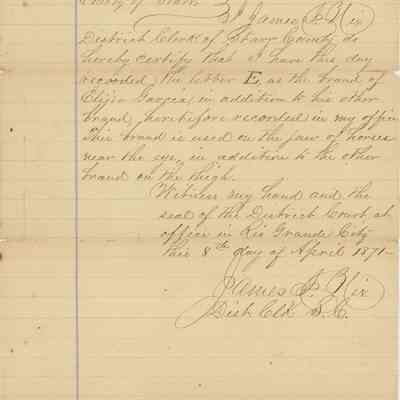 County of Starr
I James J. Nix
District Clerk of Starr County do
hereby certify that I have this day
recorded, the letter E, as the brand of
Elijio Garcia, in addition to his other
brand, heretofore recorded in my office
This brand is used on the jaw of horses
near the eye, in addition to the other
brand on the thigh.
Witness my hand and the
seal of the District Court, at
office in Rio Grande City
this 8th day of April 1871-
James J. Nix
Dist Clk S. C.